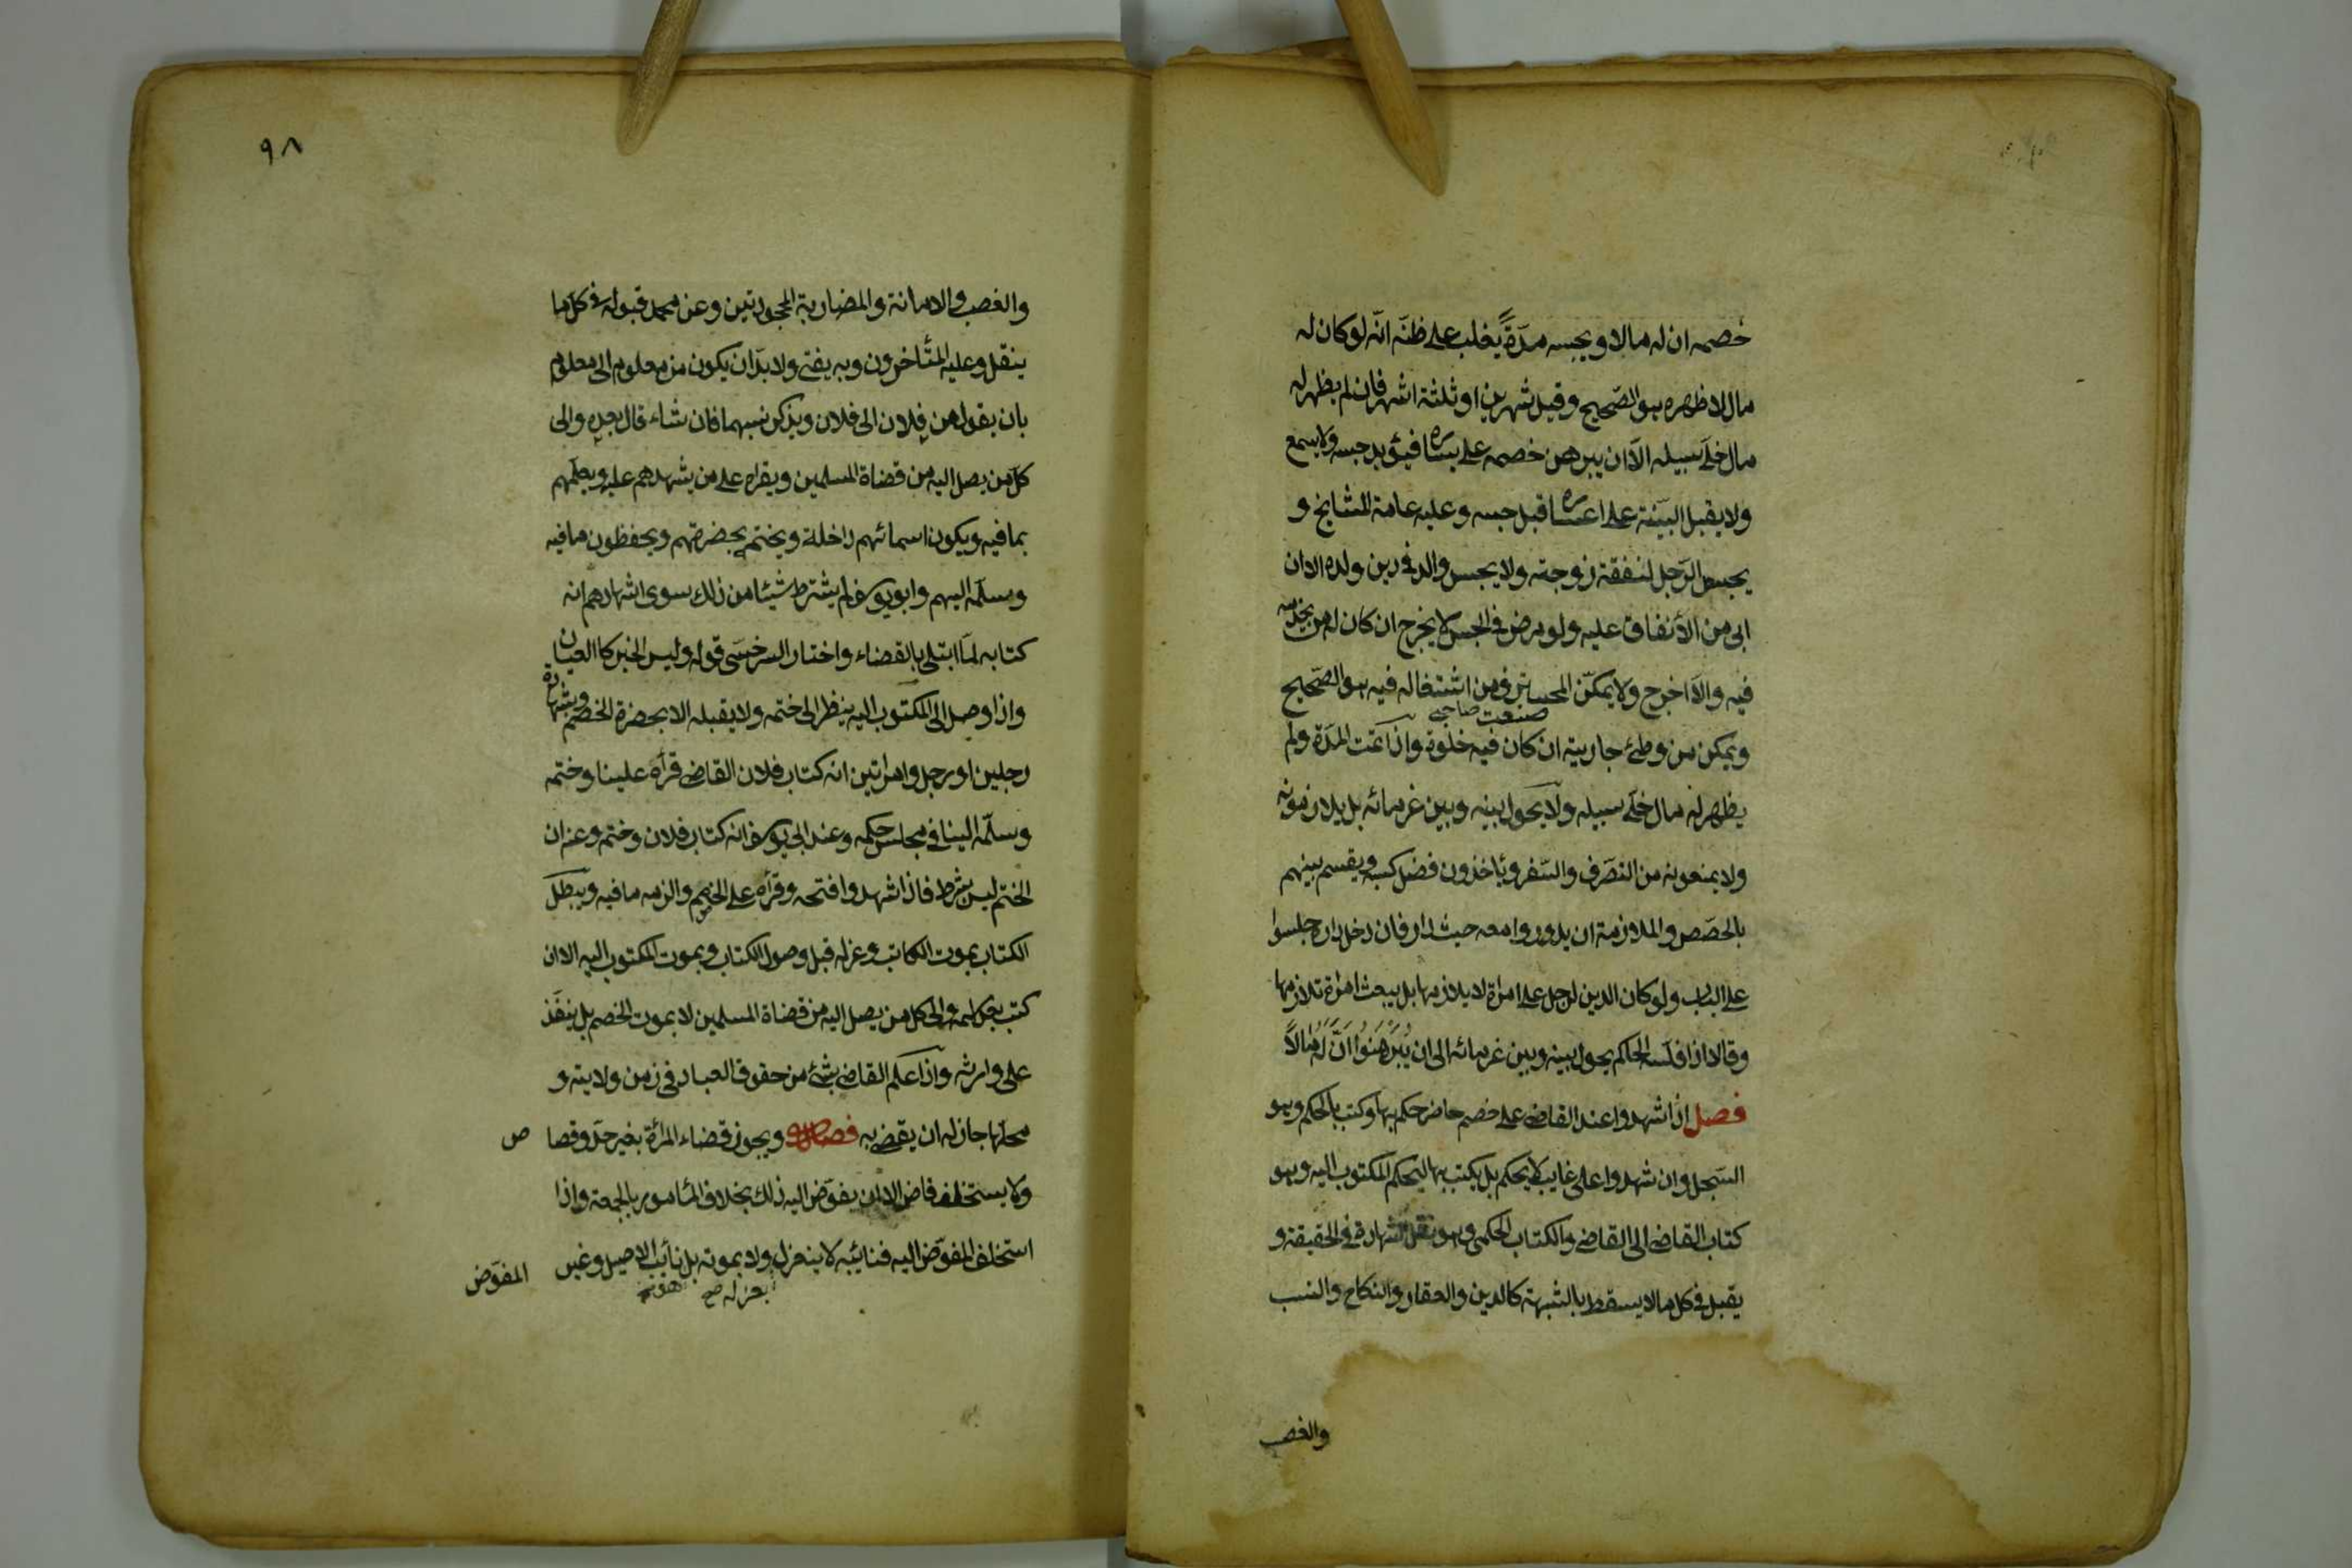 خصمه ان له مالا ويحبسه مدّةً يغلب على ظنّه انّه لو كان له
مال لاظهره هو الصّحيح وقيل شهرين او ثلثة اشهر فان لم يظهر له
مال خلّى سبيله الّا ان يبرهن خصمه على يساره فيؤبد حبسه ولا يسمع
ولا يقبل البيّنة على اعساره قبل حبسه وعليه عامة المشايخ و
يحبس الرّجل لنفقة زوجته ولا يحبس والد في دين ولده الا ان
ابى من الأنفاق عليه ولو مرض في الحبس لا يخرج ان كان له من يخدمه
فيه والّا اخرج ولا يمكّن المحترف من اشتغاله فيه هو الصّحيح
صنعت صاحبى
ويمكن من وطئ جاريته ان كان فيه خلوة واذا تمت المدّة ولم
يظهر له مال خلّى سبيله ولا يحول بينه وبين غرمائه بل يلازمونه
ولا يمنعونه من التصّرف والسّفر ويأخذون فضل كسبه ويقسم بينهم
بالحصص والملازمة ان يدوروا معه حيث دار فان دخل داره جلسوا
على الباب ولو كان الدين لرجل على امرأة لا يلازمها بل يبعث امرأة تلازمها
وقالا اذا فلّسه الحاكم يحول بينه وبين غرمائه الى ان يُبَرْهِنُوا اَنَّ لَهُ مَالاً
فصل اذا شهدوا عند القاضى على خصم حاضر حكم بها وكتب بالحكم وهو
السّجل وان شهدوا على غايب لا يحكم بل يكتب بها ليحكم المكتوب اليه وهو
كتاب القاضى الى القاضى والكتاب الحكمى وهو نقل الشهادة في الحقيقة و
يقبل في كل ما لا يسقط بالشبهة كالدين والعقار والنكاح والنسب
والغصب
٩٨
والغصب والامانة والمضاربة المجحودتين وعن محمد قبوله في كلّ ما
ينقل وعليه المتأخرون وبه يفتى ولا بدّ ان يكون من معلوم الى معلوم
بان يقول من فلان الى فلان ويذكر نسبهما فان شاء قال بعده والى
كلّ من يصل اليه من قضاة المسلمين ويقراه على من يشهدهم عليه ويعلّمهم
بما فيه ويكون اسمائهم داخلة ويختم بحضرتهم ويحفظون ما فيه
وسلّمه اليهم وابو يوسف لم يشترط شيئا من ذلك سوى اشهادهم انه
كتابه لمّا ابتلى بالقضاء واختار السرخسى قوله وليس الخبر كا العيان
واذا وصل الى المكتوب اليه ينظر الى ختمه ولا يقبله الا بحضرة الخصم وبشهادة
رجلين او رجل وامراتين انه كتاب فلان القاضى قرأه علينا وختمه
وسلّمه الينا في مجلس حكمه وعند ابى يوسف انه كتاب فلان وختمه وعنه ان
الختم ليس بشرط فاذا شهدوا فتحه وقرأه على الخصم والزمه ما فيه ويبطل
الكتاب بموت الكاتب وعزله قبل وصول الكتاب وبموت المكتوب اليه الا ان
كتب بعد اسمه والى كل من يصل اليه من قضاة المسلمين لا بموت الخصم بل ينفّذ
على وارثه واذا علم القاضى بشئ من حقوق العباد في زمن ولايته و
محلّها جاز له ان يقضى به فصل ويجوز قضاء المرأة بغير حدّ وقصا ص
ولا يستخلف قاض الا ان يفوّض اليه ذلك بخلاف المأمور بالجمعة واذا
استخلف المفوّض اليه فنائبه لا ينعزل ولا بموته بل نائب الاصيل وغير
بعزله صح
المفوّض